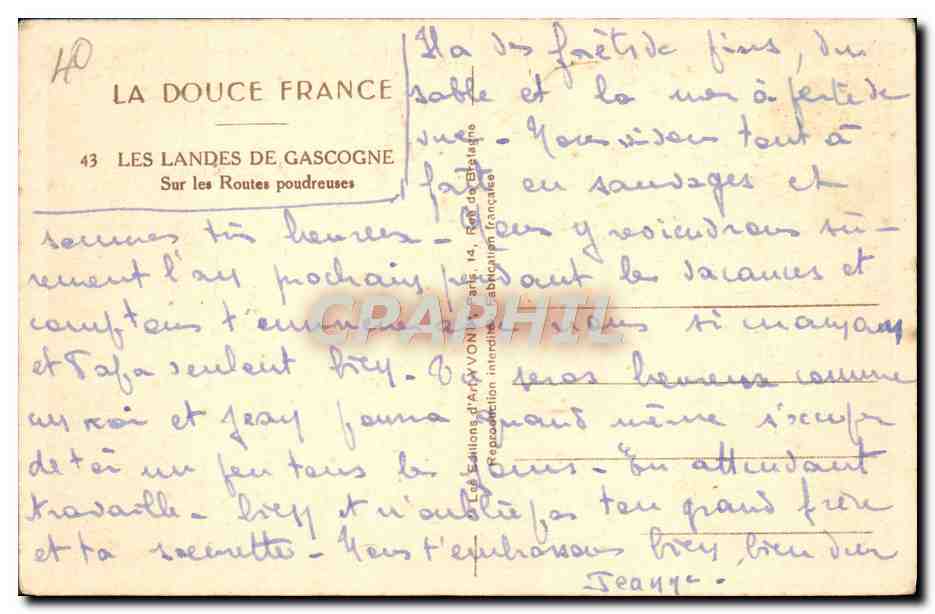 40
LA DOUCE FRANCE
43 LES LANDES DE GASCOGNE
Sur les Routes poudreuses
des forêts de pins, du
sable et la mer à perte de
vue - Nous vivons tout à
fait en sauvages et
sommes très heureux - Nous y reviendrons sû-
rement l'an prochain pendant les vacances et
comptons t'emmener avec nous si maman
et Papa veulent bien - Tu seras heureux comme
un roi et Jean pourra quand même s'occuper
de toi un peu tous les jours - En attendant
travaille - bien et n'oublie pas ton grand frère
et ta soeurette - Nous t'embrassons bien, bien dur
Les Editions d'Art YVON, Paris, 14, Rue de Bretagne
Reproduction interdite Fabrication française
CPARPHIL